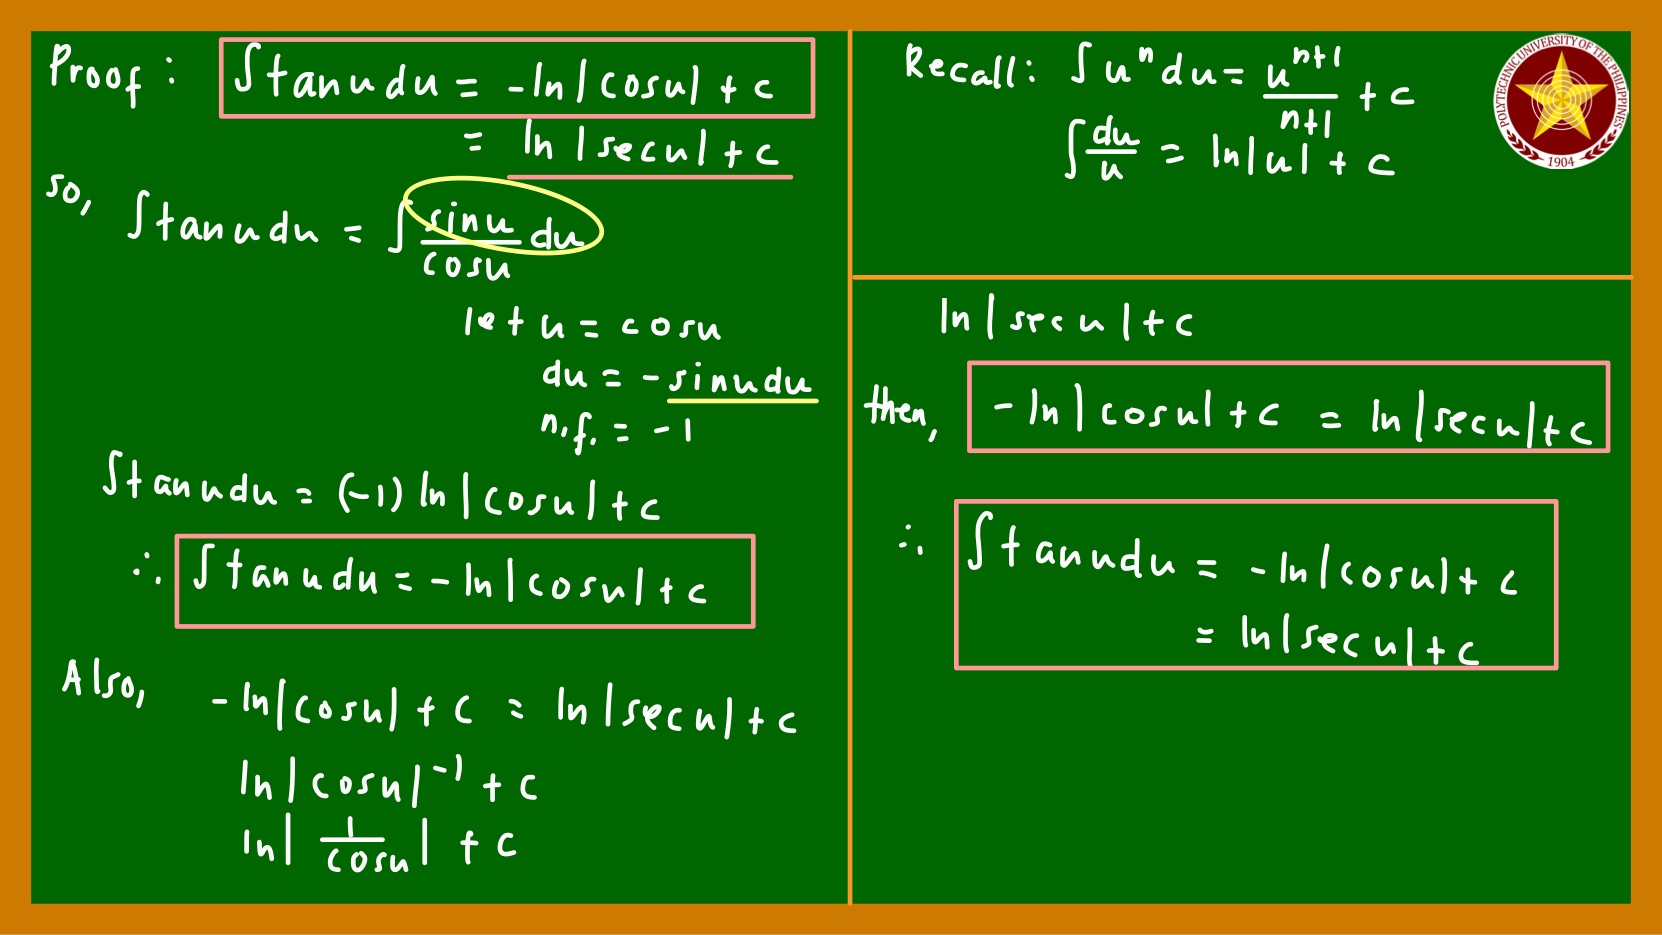 Proof : ∫tanudu = -ln|cosu| + c
= ln|secu| + c
so, ∫tanudu = ∫ sinu/cosu du
let u = cosu
du = -sinudu
n.f. = -1
∫tanudu = (-1) ln|cosu| + c
∴ ∫tanudu = -ln|cosu| + c
Also, -ln|cosu| + c = ln|secu| + c
ln|cosu|⁻¹ + c
ln|1/cosu| + c
Recall: ∫uⁿdu = uⁿ⁺¹/n+1 + c
∫du/u = ln|u| + c
POLYTECHNIC UNIVERSITY OF THE PHILIPPINES
1904
ln|secu| + c
then, -ln|cosu| + c = ln|secu| + c
∴ ∫tanudu = -ln|cosu| + c
= ln|secu| + c